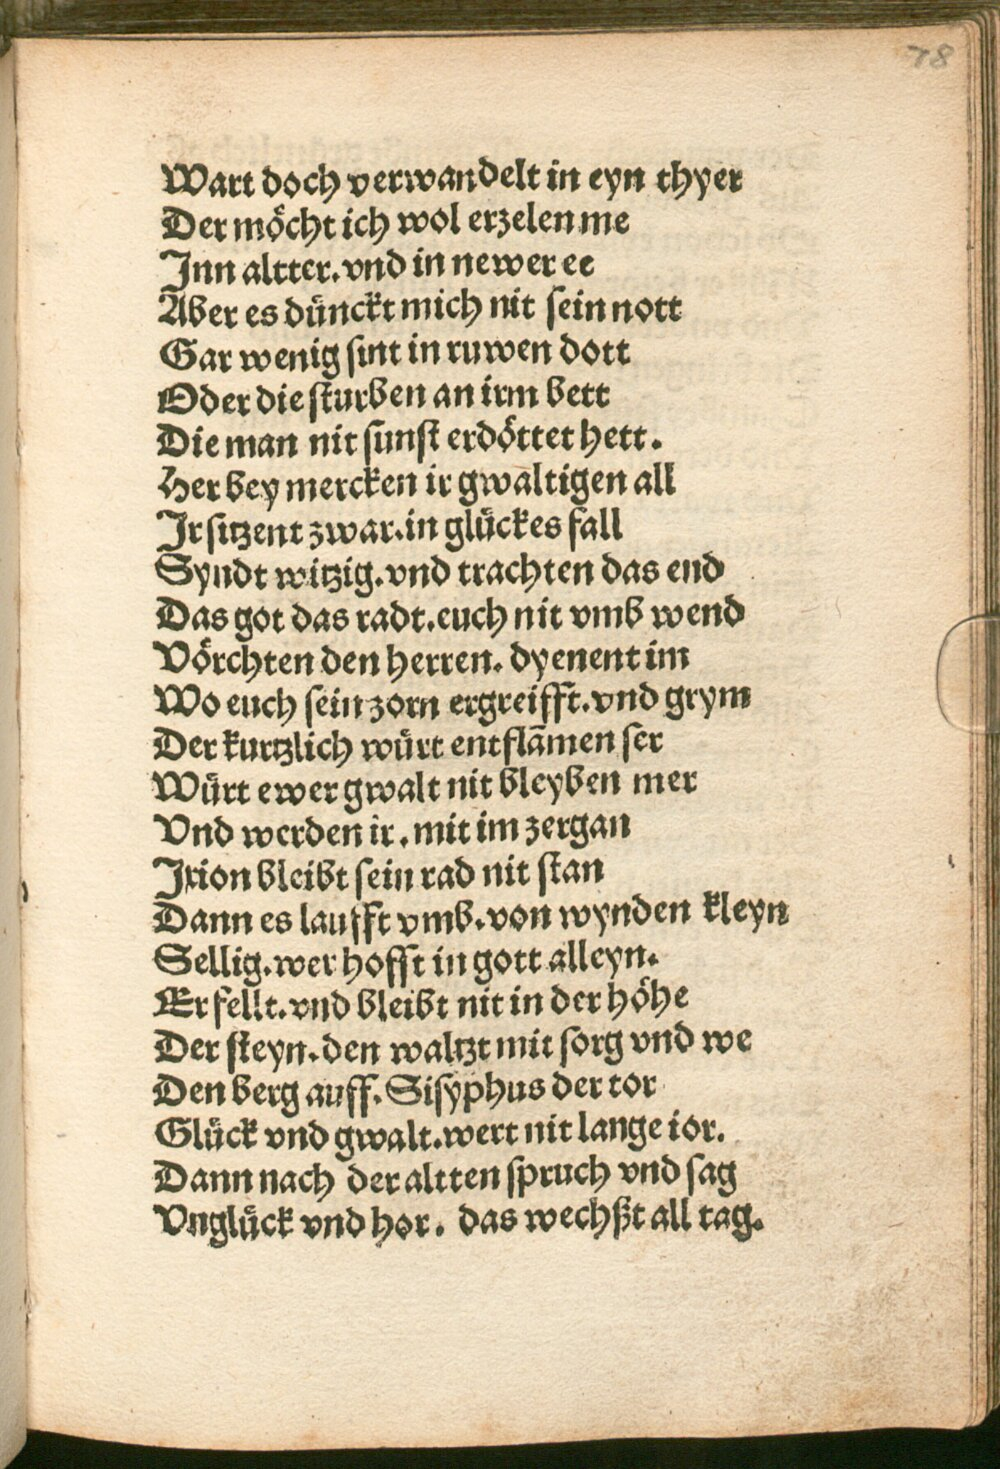 78
Wart doch verwandelt in eyn thyer
Der möcht ich wol erzelen me
Inn altter. vnd in newer ee
Aber es dünckt mich nit sein nott
Gar wenig sint in ruwen dott
Oder die sturben an irm bett
Die man nit sunst erdöttet hett.
Her bey mercken ir gwaltigen all
Ir sitzent zwar. in glückes fall
Syndt witzig. vnd trachten das end
Das got das radt. euch nit vmb wend
Vörchten den herren. dyenent im
Wo euch sein zorn ergreifft. vnd grym
Der kurtzlich würt entflãmen ser
Würt ewer gwalt nit bleyben mer
Vnd werden ir. mit im zergan
Ixion bleibt sein rad nit stan
Dann es laufft vmb. von wynden kleyn
Sellig. wer hofft in gott alleyn.
Er fellt. vnd bleibt nit in der höhe
Der steyn. den waltzt mit sorg vnd we
Den berg auff. Sisyphus der tor
Glück vnd gwalt. wert nit lange ior.
Dann nach der altten spruch vnd sag
Vnglück vnd hor. das wechßt all tag.